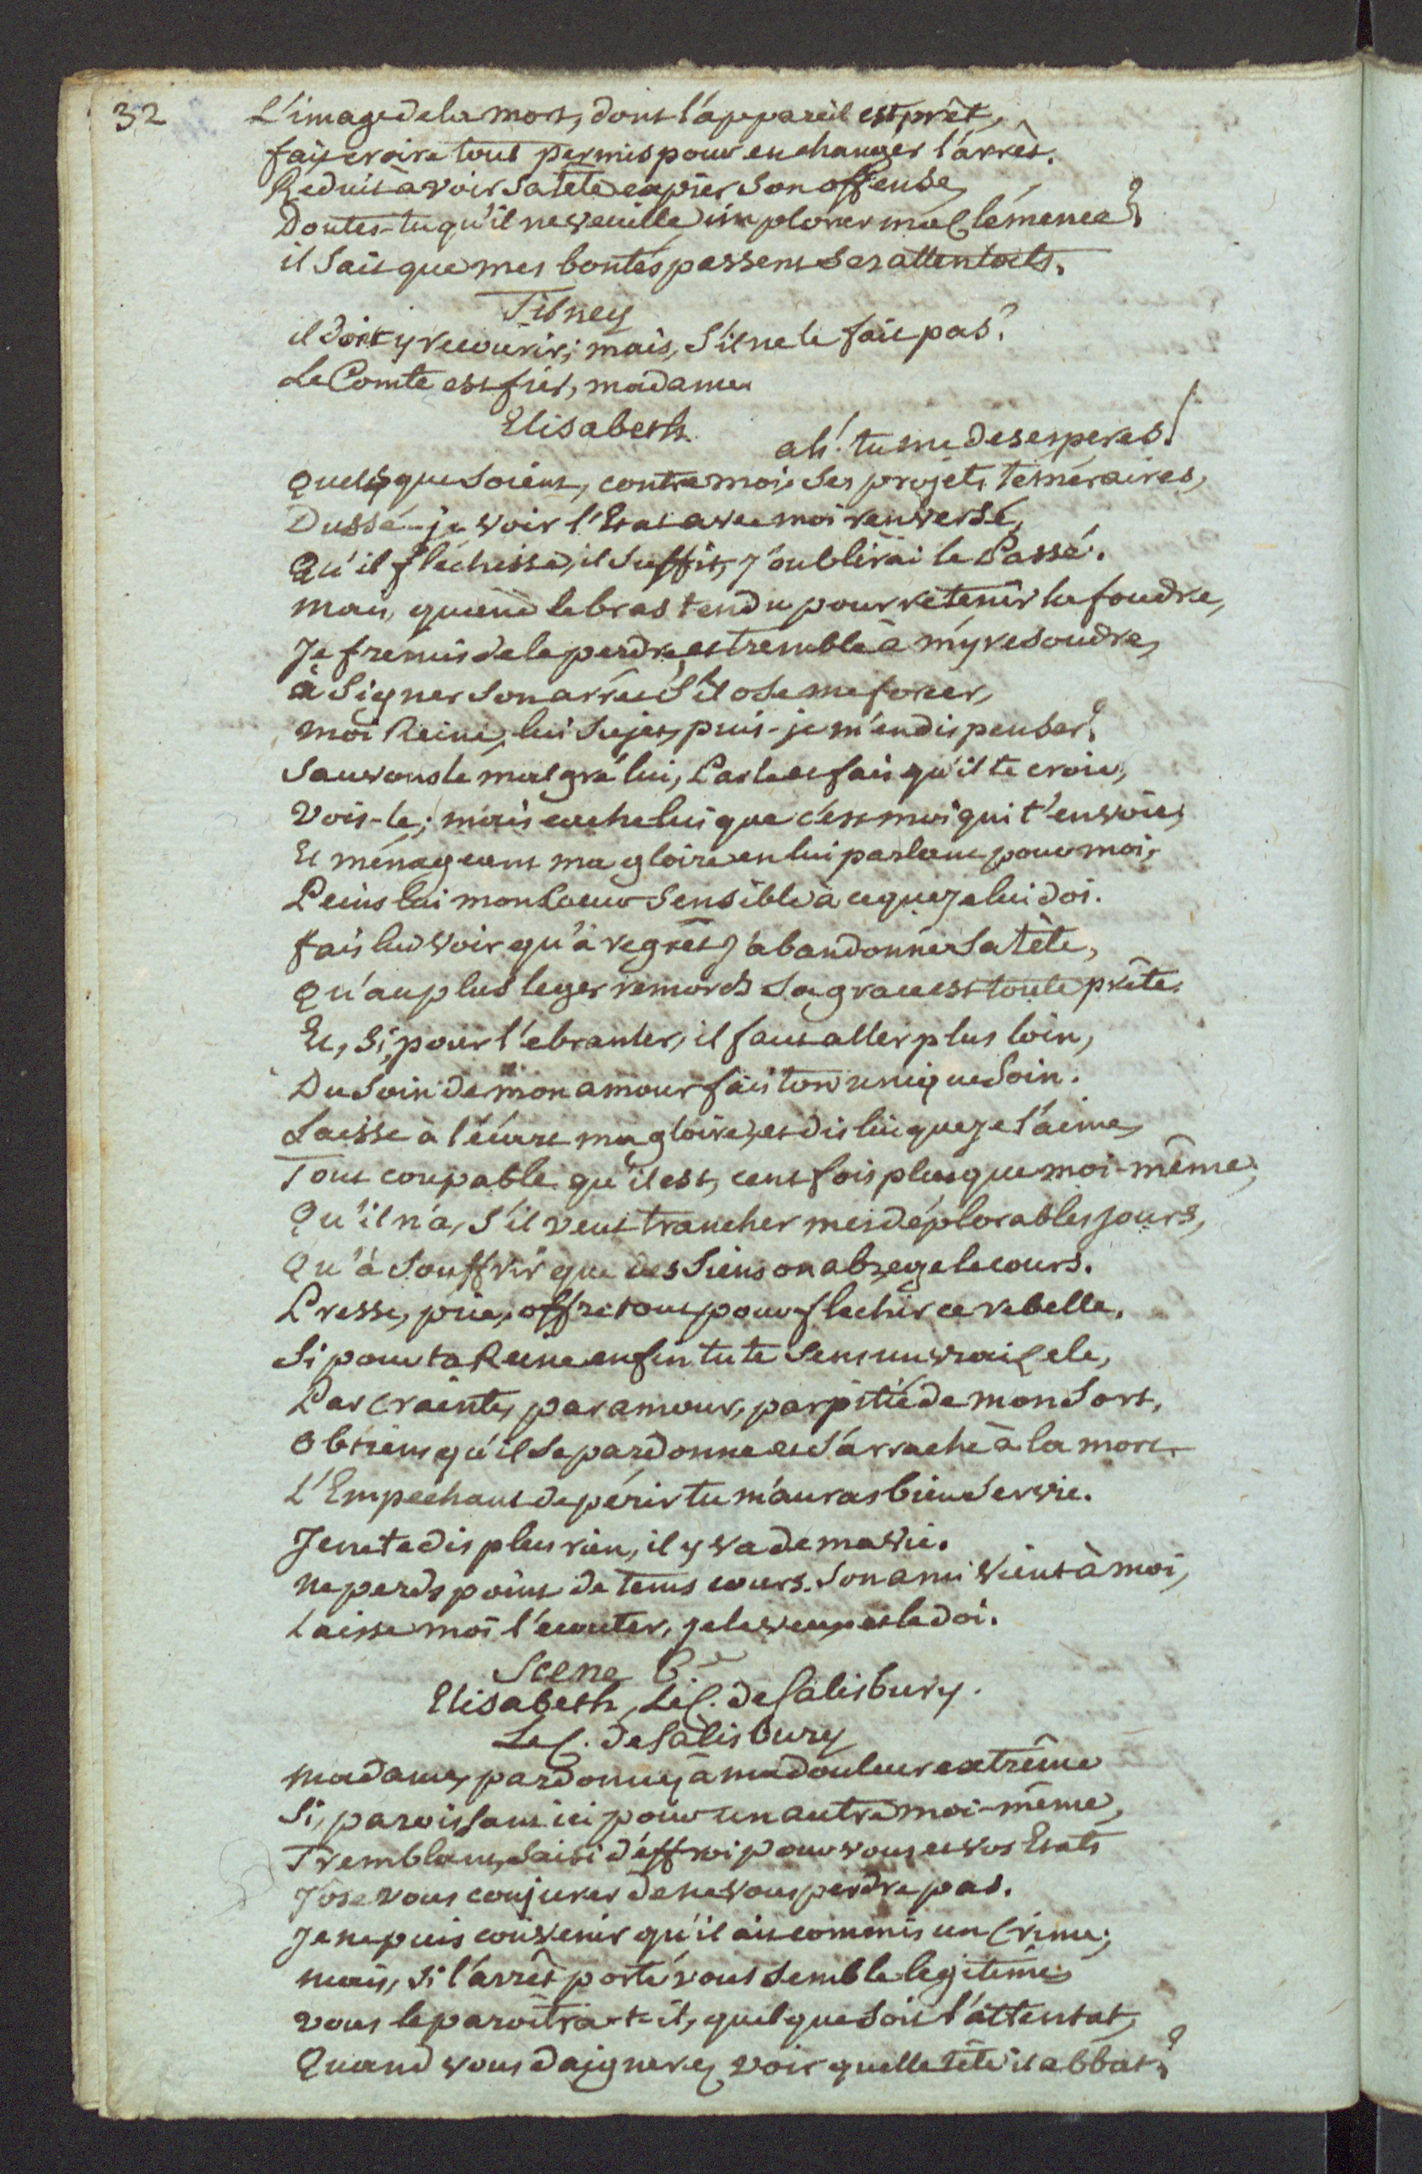 32
L'image de la mort, dont l'appareil est prêt,
fait croire tout permis pour en changer l'arrêt.
Réduit à voir sa tête expier son offense,
Doutes-tu qu'il ne veuille implorer ma Clémence?
il sait que mes bontés passent ses attentats.
Tilney
il doit y recourir; mais, s'il ne le fait pas?
Le Comte est fier, madame.
Elisabeth
ah! tu me desesperes!
Quels que soient, contre moi, ses projets témeraires,
Dussé-je voir l'Etat avec moi renversé,
Qu'il fléchisse, il suffit, j'oublirai le Passé.
mais, quand le bras tendu pour retenir la foudre,
Je fremis de le perdre, et tremble à m'y resoudre,
à signer son arrêt s'il ose me forcer,
moi Reine, lui sujet, puis-je m'en dispenser?
sauvons le malgré lui, Parle et fais qu'il te croie,
Vois-le; mais cache lui que c'est moi qui t'envoie;
Et ménageant ma gloire en lui parlant pour moi,
Peins lui mon Coeur sensible à ce que je lui doi.
fais lui voir qu'à regrêt j'abandonne sa tête,
Qu'au plus leger remords sa grace est toute prête.
Et, si, pour l'ebranler, il faut aller plus loin,
Du soin de mon amour fais ton unique soin.
Laisse à l'écart ma gloire, et dis lui que je l'aime,
Tout coupable qu'il est, cent fois plus que moi-même;
Qu'il n'a, s'il veut trancher mes déplorables jours,
Qu'à souffrir que des siens on abrege le cours.
Presse, prie, offre tout pour flechir ce rebelle.
Si pour ta Reine enfin tu te sens un vrai zele,
Par crainte, par amour, par pitié de mon sort,
Obtiens qu'il se pardonne et s'arrache à la mort.
L'Empechant de périr tu m'auras bien servie.
Je ne te dis plus rien, il y va de ma vie.
ne perds point de tems cours. son ami vient à moi,
Laisse moi l'ecouter, je le veux et le doi.
Scene 6e
Elisabeth, Le C. de Salisbury.
Le C. de Salisbury
madame, pardonnez à ma douleur extrême
Si, paroissant ici pour un autre moi-même,
Tremblant, saisi d'éffroi pour vous et vos Etats
J'ose vous conjurer de ne vous perdre pas.
Je ne puis convenir qu'il ait commis un Crime;
mais, si l'arrêt porté vous semble legitime
vous le paroîtra-t-il, quel que soit l'attentat,
Quand vous daignerez voir quelle tête il abbat?